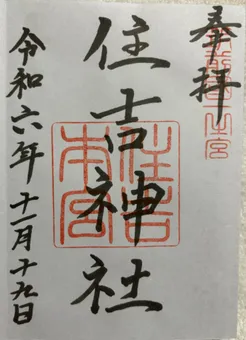 奉拝
住吉神社
住吉
本宮
令和六年十一月十九日